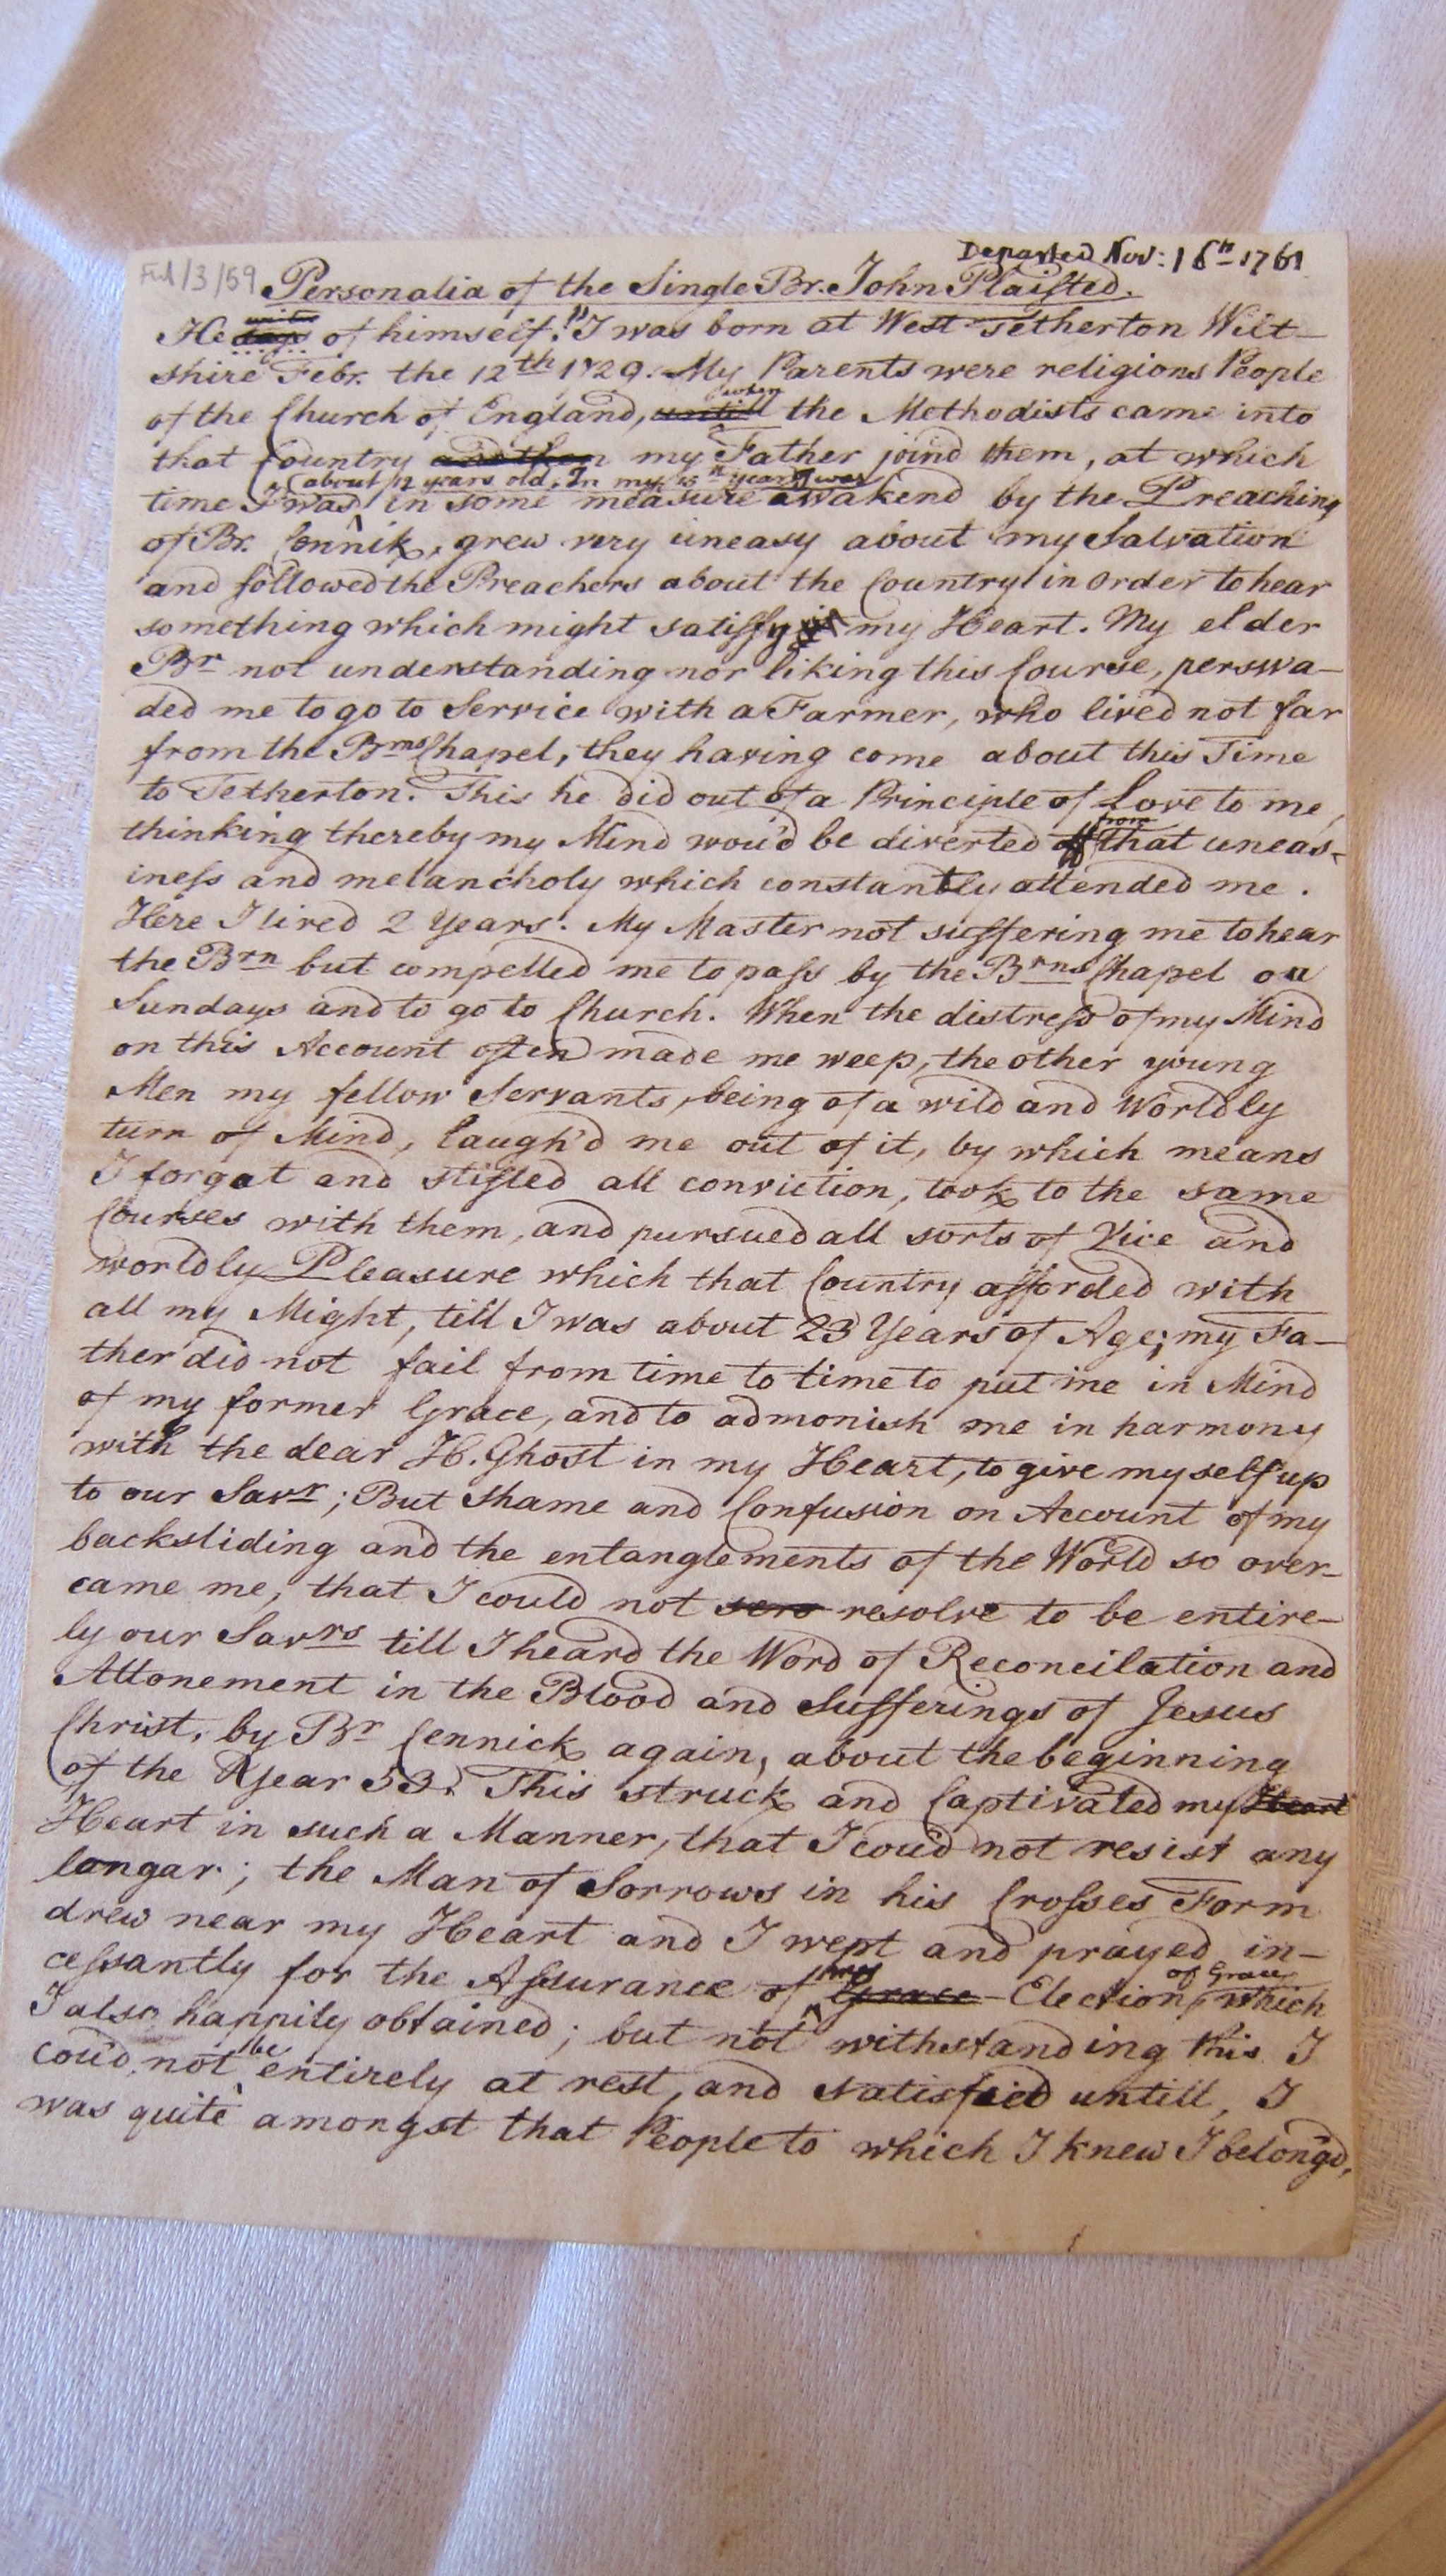 Departed Nov: 16th 1761
Ful/3/59
Personalia of the Single Br. John Plaisted.
He says of himself: "I was born at West Tetherton Wilt-
shire Febr. the 12th 1729. My Parents were religious People
of the Church of England, untill when the Methodists came into
that Country and then my Father joind them, at which
time I was about 12 years old. In my 15th year I was in some measure awakend by the Preaching
of Br. Cennik, grew very uneasy about my Salvation
and followed the Preachers about the Country in order to hear
something which might satisfy my Heart. My elder
Br not understanding nor liking this Course, perswa-
ded me to go to Service with a Farmer, who lived not far
from the Brns Chapel, they having come about this Time
to Tetherton. This he did out of a Principle of Love to me,
thinking thereby my Mind wou'd be diverted off from that uneas-
iness and melancholy which constantly attended me.
Here I lived 2 Years. My Master not suffering me to hear
the Brn but compelled me to pass by the Brns Chapel on
Sundays and to go to Church. When the distress of my Mind
on this Account often made me weep, the other young
Men my fellow Servants, being of a wild and Worldly
turn of Mind, laugh'd me out of it, by which means
I forgot and stifled all conviction, took to the same
Courses with them, and pursued all sorts of Vice and
worldly Pleasure which that Country afforded with
all my Might, till I was about 23 Years of Age; my Fa-
ther did not fail from time to time to put me in Mind
of my former Grace, and to admonish me in harmony
with the dear H. Ghost in my Heart, to give myself up
to our Savr; But shame and Confusion on Account of my
backsliding and the entanglements of the World so over-
came me, that I could not resolve to be entire-
ly our Savrs till I heard the Word of Reconcilation and
Attonement in the Blood and Sufferings of Jesus
Christ, by Br Cennick again, about the beginning
of the Year 53. This struck and Captivated my Heart
Heart in such a Manner, that I cou'd not resist any
longar; the Man of Sorrows in his Crosses Form
drew near my Heart and I wept and prayed in-
cessantly for the Assurance of my Grace Election of Grace, which
I also happily obtained; but not withstanding this I
cou'd not be entirely at rest, and satisfied untill, I
was quite amongst that People to which I knew I belong'd,